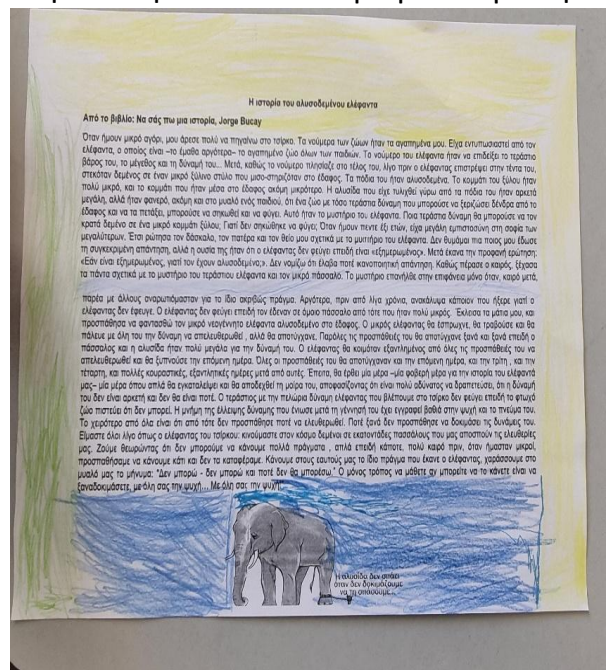 Η ιστορία του αλυσοδεμένου ελέφαντα
Από το βιβλίο: Να σάς πω μια ιστορία, Jorge Bucay
Όταν ήμουν μικρό αγόρι, μου άρεσε πολύ να πηγαίνω στο τσίρκο. Τα νούμερα των ζώων ήταν τα αγαπημένα μου. Είχα εντυπωσιαστεί από τον
ελέφαντα, ο οποίος είναι –το έμαθα αργότερα– το αγαπημένο ζώο όλων των παιδιών. Το νούμερο του ελέφαντα ήταν να επιδείξει το τεράστιο
βάρος του, το μέγεθος και τη δύναμή του... Μετά, καθώς το νούμερο πλησίαζε στο τέλος του, λίγο πριν ο ελέφαντας επιστρέψει στην τέντα του,
στεκόταν δεμένος σε έναν μικρό ξύλινο στύλο που μισο-στηριζόταν στο έδαφος. Τα πόδια του ήταν αλυσοδεμένα. Το κομμάτι του ξύλου ήταν
πολύ μικρό, και το κομμάτι που ήταν μέσα στο έδαφος ακόμη μικρότερο. Η αλυσίδα που είχε τυλιχθεί γύρω από τα πόδια του ήταν αρκετά
μεγάλη, αλλά ήταν φανερό, ακόμη και στο μυαλό ενός παιδιού, ότι ένα ζώο με τόσο τεράστια δύναμη που μπορούσε να ξεριζώσει δένδρα από το
έδαφος και να τα πετάξει, μπορούσε να σηκωθεί και να φύγει. Αυτό ήταν το μυστήριο του ελέφαντα. Ποια τεράστια δύναμη θα μπορούσε να τον
κρατά δεμένο σε ένα μικρό κομμάτι ξύλου; Γιατί δεν σηκώθηκε να φύγει; Όταν ήμουν πέντε έξι ετών, είχα μεγάλη εμπιστοσύνη στη σοφία των
μεγαλύτερων. Έτσι ρώτησα τον δάσκαλο, τον πατέρα και τον θείο μου σχετικά με το μυστήριο του ελέφαντα. Δεν θυμάμαι πια ποιος μου έδωσε
τη συγκεκριμένη απάντηση, αλλά η ουσία της ήταν ότι ο ελέφαντας δεν φεύγει επειδή είναι «εξημερωμένος». Μετά έκανα την προφανή ερώτηση:
«Εάν είναι εξημερωμένος, γιατί τον έχουν αλυσοδεμένο;». Δεν νομίζω ότι έλαβα ποτέ ικανοποιητική απάντηση. Καθώς πέρασε ο καιρός, ξέχασα
τα πάντα σχετικά με το μυστήριο του τεράστιου ελέφαντα και τον μικρό πάσσαλο. Το μυστήριο επανήλθε στην επιφάνεια μόνο όταν, καιρό μετά,
παρέα με άλλους αναρωτιόμασταν για το ίδιο ακριβώς πράγμα. Αργότερα, πριν από λίγα χρόνια, ανακάλυψα κάποιον που ήξερε γιατί ο
ελέφαντας δεν έφευγε. Ο ελέφαντας δεν φεύγει επειδή τον έδεναν σε όμοιο πάσσαλο από τότε που ήταν πολύ μικρός. Έκλεισα τα μάτια μου, και
προσπάθησα να φαντασθώ τον μικρό νεογέννητο ελέφαντα αλυσοδεμένο στο έδαφος. Ο μικρός ελέφαντας θα έσπρωχνε, θα τραβούσε και θα
πάλευε με όλη του την δύναμη να απελευθερωθεί , αλλά θα αποτύγχανε. Παρόλες τις προσπάθειές του θα αποτύγχανε ξανά και ξανά επειδή ο
πάσσαλος και η αλυσίδα ήταν πολύ μεγάλα για την δύναμή του. Ο ελέφαντας θα κοιμόταν εξαντλημένος από όλες τις προσπάθειές του να
απελευθερωθεί και θα ξυπνούσε την επόμενη ημέρα. Όλες οι προσπάθειές του θα αποτύγχαναν και την επόμενη ημέρα, και την τρίτη , και την
τέταρτη, και πολλές κουραστικές, εξαντλητικές ημέρες μετά από αυτές. Έπειτα, θα έρθει μία μέρα –μία φοβερή μέρα για την ιστορία του ελέφαντά
μας– μία μέρα όπου απλά θα εγκαταλείψει και θα αποδεχθεί τη μοίρα του, αποφασίζοντας ότι είναι πολύ αδύνατος να δραπετεύσει, ότι η δύναμή
του δεν είναι αρκετή και δεν θα είναι ποτέ. Ο τεράστιος με την πελώρια δύναμη ελέφαντας που βλέπουμε στο τσίρκο δεν φεύγει επειδή το φτωχό
ζώο πιστεύει ότι δεν μπορεί. Η μνήμη της έλλειψης δύναμης που ένιωσε μετά τη γέννησή του έχει εγγραφεί βαθιά στην ψυχή και το πνεύμα του.
Το χειρότερο από όλα είναι ότι από τότε δεν προσπάθησε ποτέ να ελευθερωθεί. Ποτέ ξανά δεν προσπάθησε να δοκιμάσει τις δυνάμεις του.
Είμαστε όλοι λίγο όπως ο ελέφαντας του τσίρκου: κινούμαστε στον κόσμο δεμένοι σε εκατοντάδες πασσάλους που μας αποσπούν τις ελευθερίες
μας. Ζούμε θεωρώντας ότι δεν μπορούμε να κάνουμε πολλά πράγματα , απλά επειδή κάποτε, πολύ καιρό πριν, όταν ήμασταν μικροί,
προσπαθήσαμε να κάνουμε κάτι και δεν τα καταφέραμε. Κάνουμε στους εαυτούς μας το ίδιο πράγμα που έκανε ο ελέφαντας, χαράσσουμε στο
μυαλό μας το μήνυμα: "Δεν μπορώ - δεν μπορώ και ποτέ δεν θα μπορέσω." Ο μόνος τρόπος να μάθετε αν μπορείτε να το κάνετε είναι να
ξαναδοκιμάσετε, με όλη σας την ψυχή... Με όλη σας την ψυχή!
Η αλυσίδα δεν σπάει
όταν δεν δοκιμάζουμε
να τη σπάσουμε...